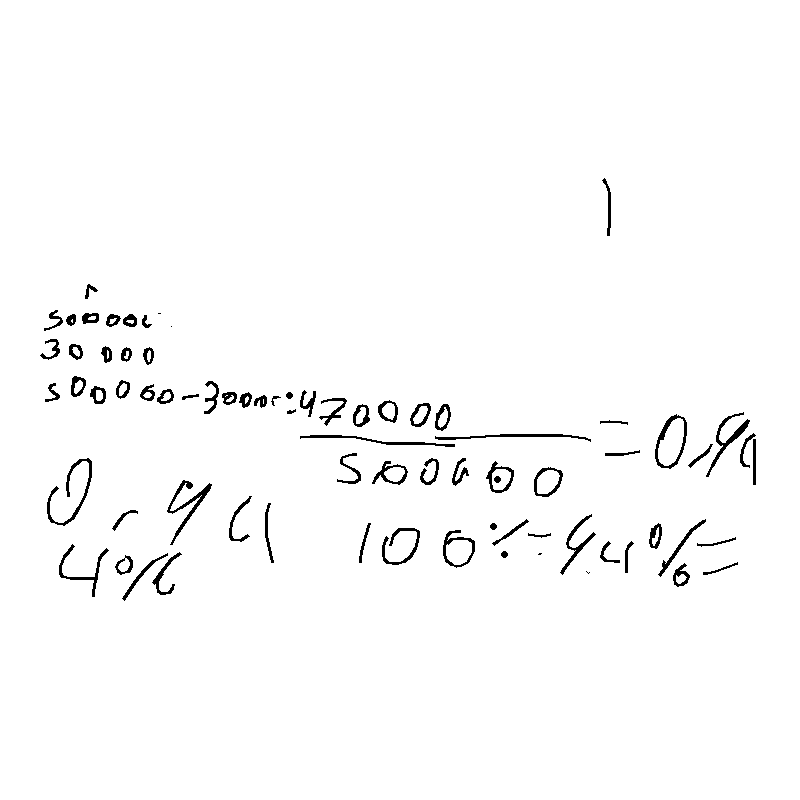 500000
30 000
500000-30000=470000
500000
=0,94
0,94
4%
100%-94%=